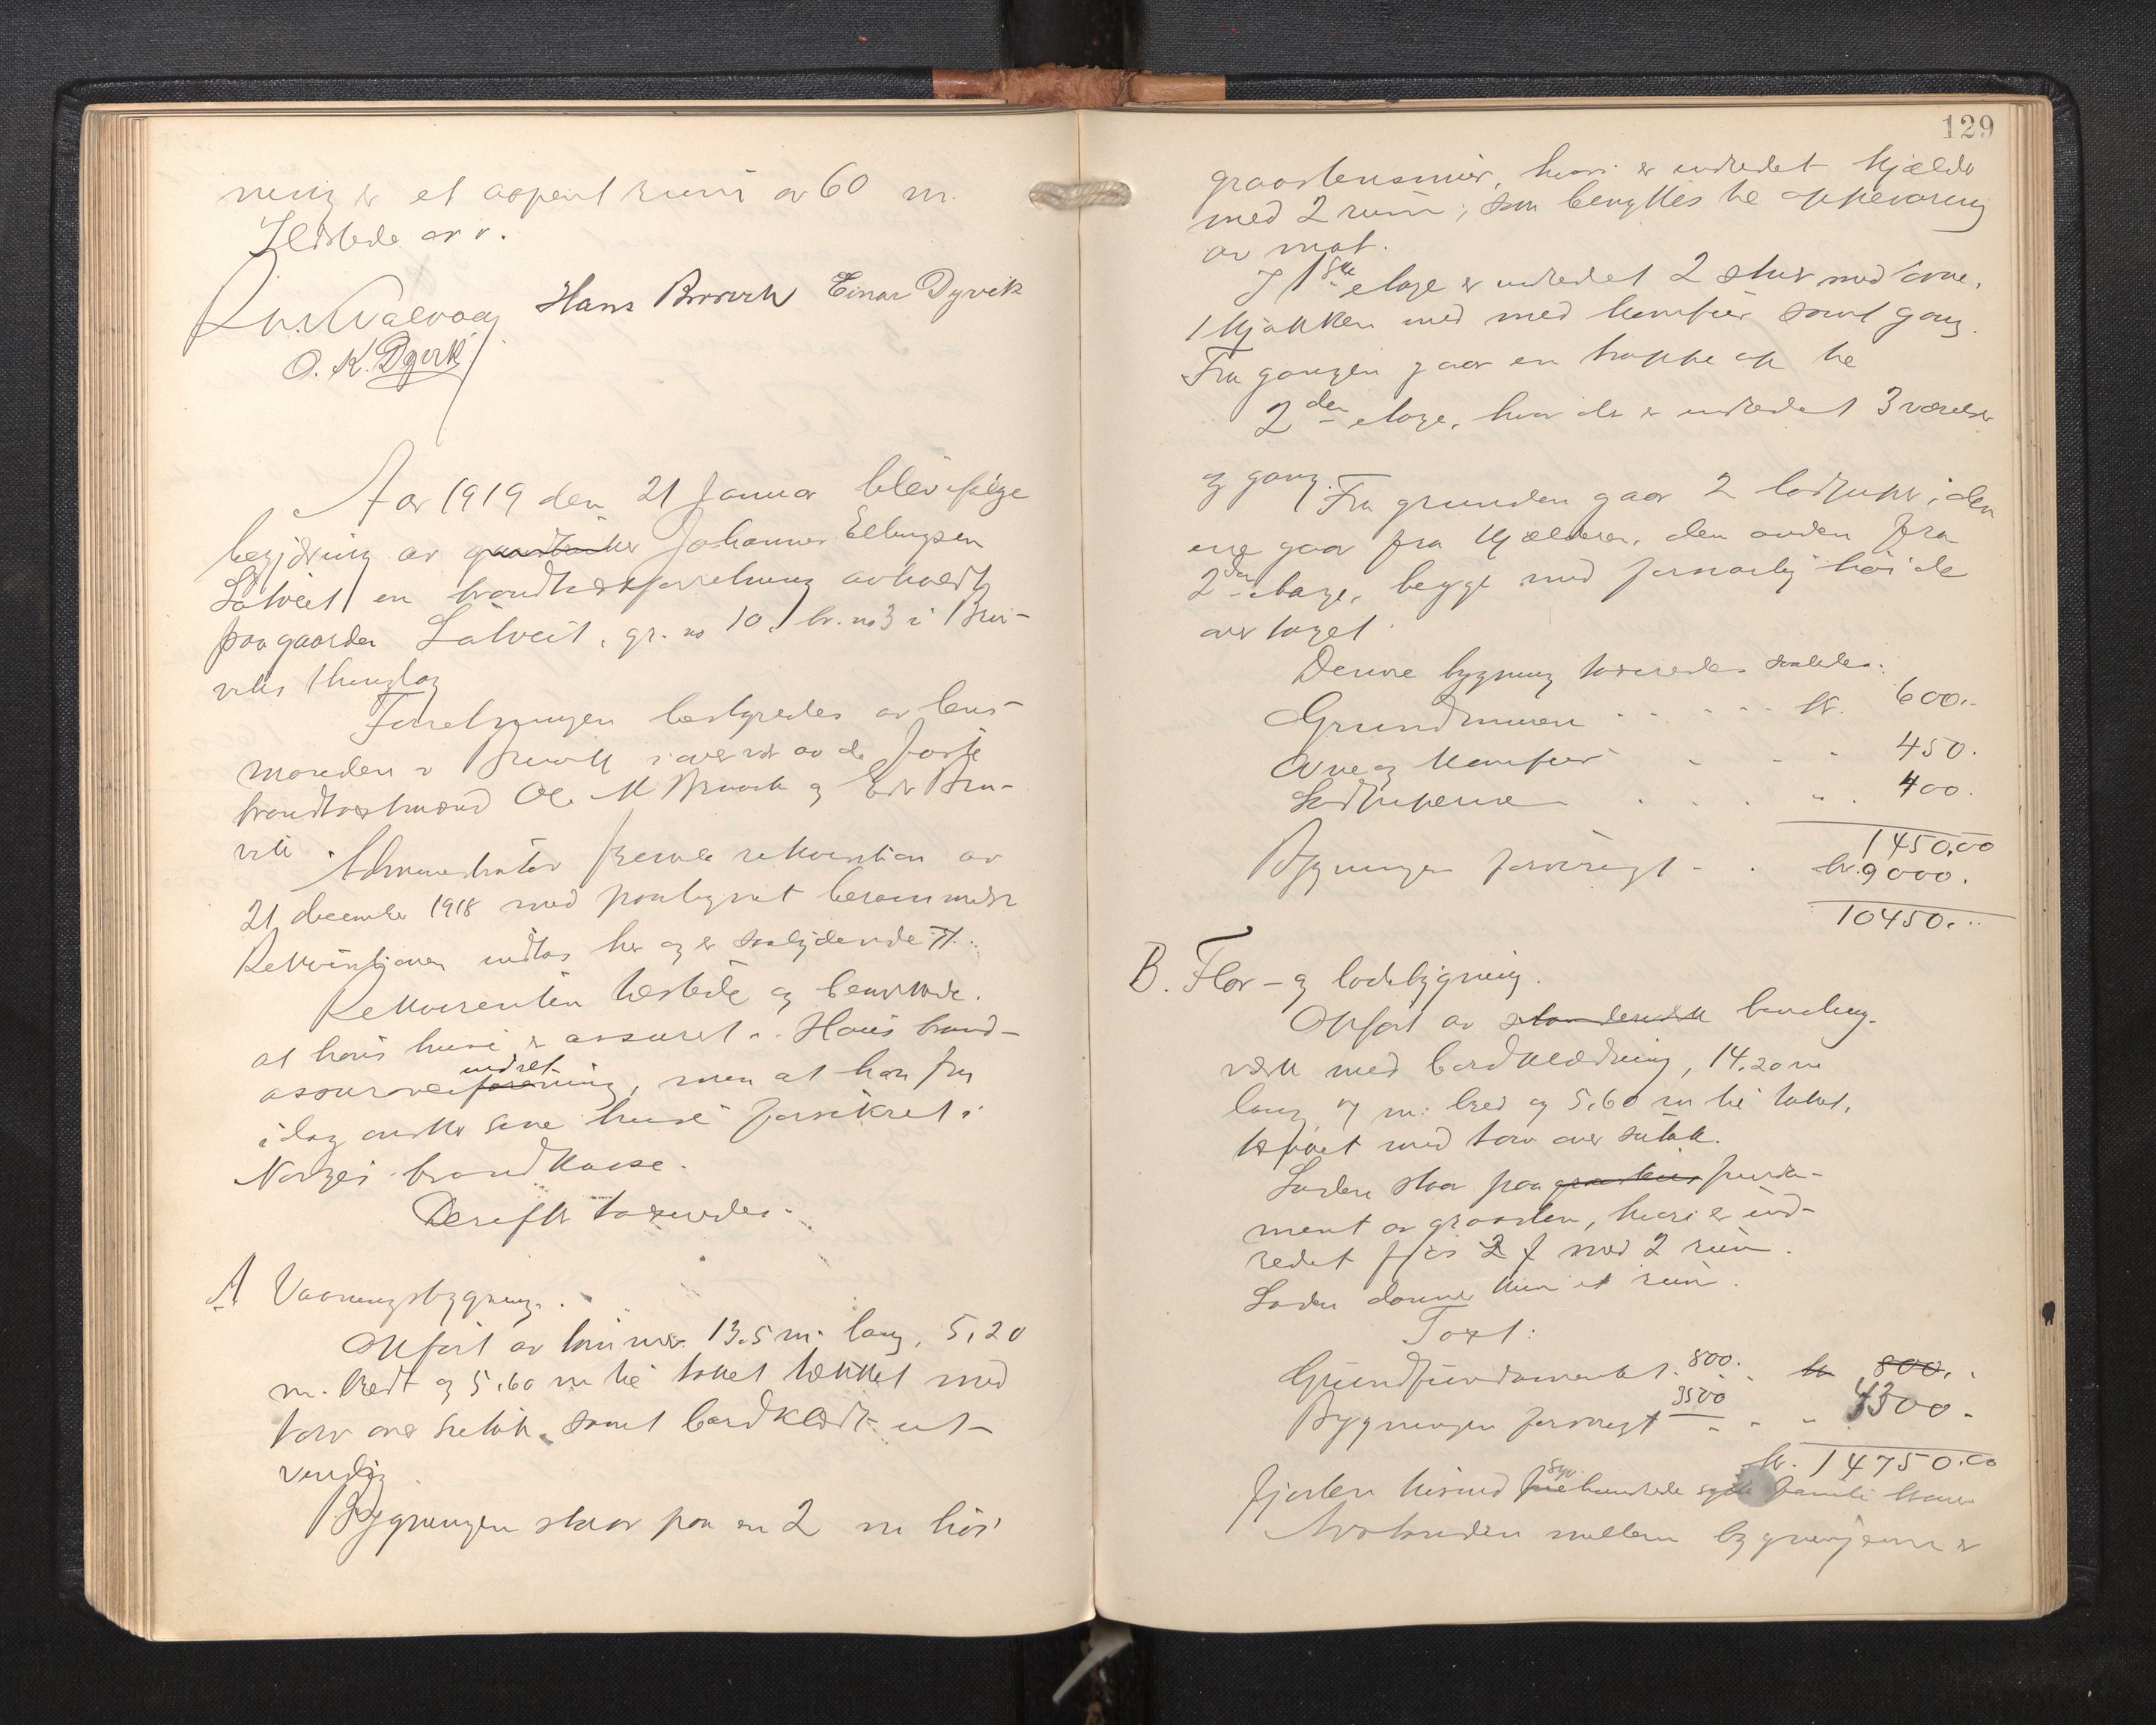 ning er et aapent rum av 60 m.
Ildstede av v.
Hans Brorvik Einar Dyvik
O. K. Dyvik
Aar 1919 den 21 Januar blev ifølge
begjæring av gaardbruker Johannes Ellingsen
Låtveit en brandtakstforretning avholdt
paa gaarden Låtveit, gr. no 10 br. no 3 i Bru-
viks thinglag
Forretningen bestyredes av lens-
manden i Bruvik i overvær av de faste
brandtakstmænd Ole M Bruvik og Edv Bru-
vik.
Administrator fremla rekvisition av
21 december 1918 med paategnet berammelse
Rekvisitionen indtas her og er saalydende ://:
Rekvirenten tilstede og bemerket
at hans huse er assurert i Haus brand-
assuranceindretforening, men at han fra
idag ønsker sine huse forsikret i
Norges brandkasse.
Derefter takseredes.
A Vaaningsbygning.
Opført av tømmer 13.5 m. lang, 5,20
m. bredt og 5,60 m til taket tækket med
torv over sutak samt bordklædt ut-
vendig.
Bygningen staar paa en 2 m høi
129
graastensmur, hvori er indredet kjælder
med 2 rum, som benyttes til oppevaring
av mat.
I 1ste etage er indredet 2 stuer med ovne,
1 kjøkken med med komfur samt gang.
Fra gangen gaar en trappe op til
2den etage, hvor der er indredet 3 værelser
og gang.
Fra grunden gaar 2 lodpiper, den
ene gaar fra kjælderen, den anden fra
2den etage, begge med forsvarlig høide
over taget.
Denne bygning takseredes saaledes:
Grundmuren . . . . . kr. 600.-
Ovne og komfur . . . 450.
Lodpiperne . . . . „ . 400.
1450,00
Bygningen forøvrigt - . kr. 9000.
10450. „
B. Flor- og lødebygning.
Opført av standerverk bindings-
værk med bordklædning, 14,20 m
lang 7 m. bred og 5,60 m til taket,
tækket med torv over sutak.
Laden staar paa graastens funda-
ment av graasten, hvori er ind-
redet fjøs 2 f med 2 rum.
Laden danner kun et rum.
Taxt:
Grundfundamentet . 800. . kr 800. .
Bygningen forøvrigt 3500 - „ 4300 -
kr. 14750.00
fjorten tusind syv hundrede femti kroner
Avstanden mellem bygningerne er